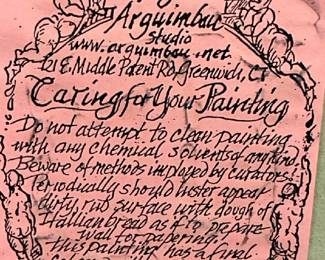 Arguimbau
Studio
www.arguimbau.net
121 E. Middle Patent Rd, Greenwich, CT
Caring for Your Painting
Do not attempt to clean painting
with any chemical solvents of any kind.
Beware of methods imployed by curators!
Periodically should luster appear
dirty, rub surface with dough of
Itallian bread as if to prepare
wall for papering.
this painting has a final